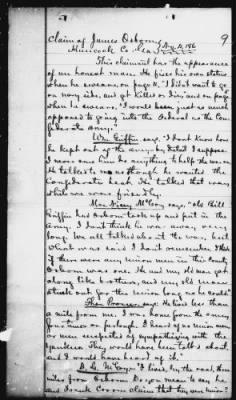 Claim of James Osborn
Hancock Co. Ga.
9
This claimant has the appearance
of an honest man. He fixes his own status
when he swears, on page 11, "I didn't want to go
on nary side, and get killed on nary and on page
when he swears, "I would been just as much
opposed to going into the Federal as the Con-
federate Army."
Wm. Griffin says: "I don't know how
he kept out of the army by detail I suppose
I never one him do anything to help the war on
He talked to me as though he wanted the
Confederate beat. He talked that way
while war was
Mrs. McCoy says: "Old Bill
Griffin had Osborn took up and put in the
Army. I don't think he was away very
long. We all talked about the war, but
what was said I don't remember. I think
if there were any union men in this county
Osborn was one. He and my old man got
along like brothers, and my old man
stuck out for the union long as he could"
says: He lived less than
a mile from me. I was home from the army
four times on furlough. I heard of no union men,
or men suspected of sympathizing with the
Yankees. They would have been talked about
and I would have heard of it."
McCoy: "I lived, by the road, three
miles from Osborn. Do you mean to say he
and Frank Coxom claim that they were union?